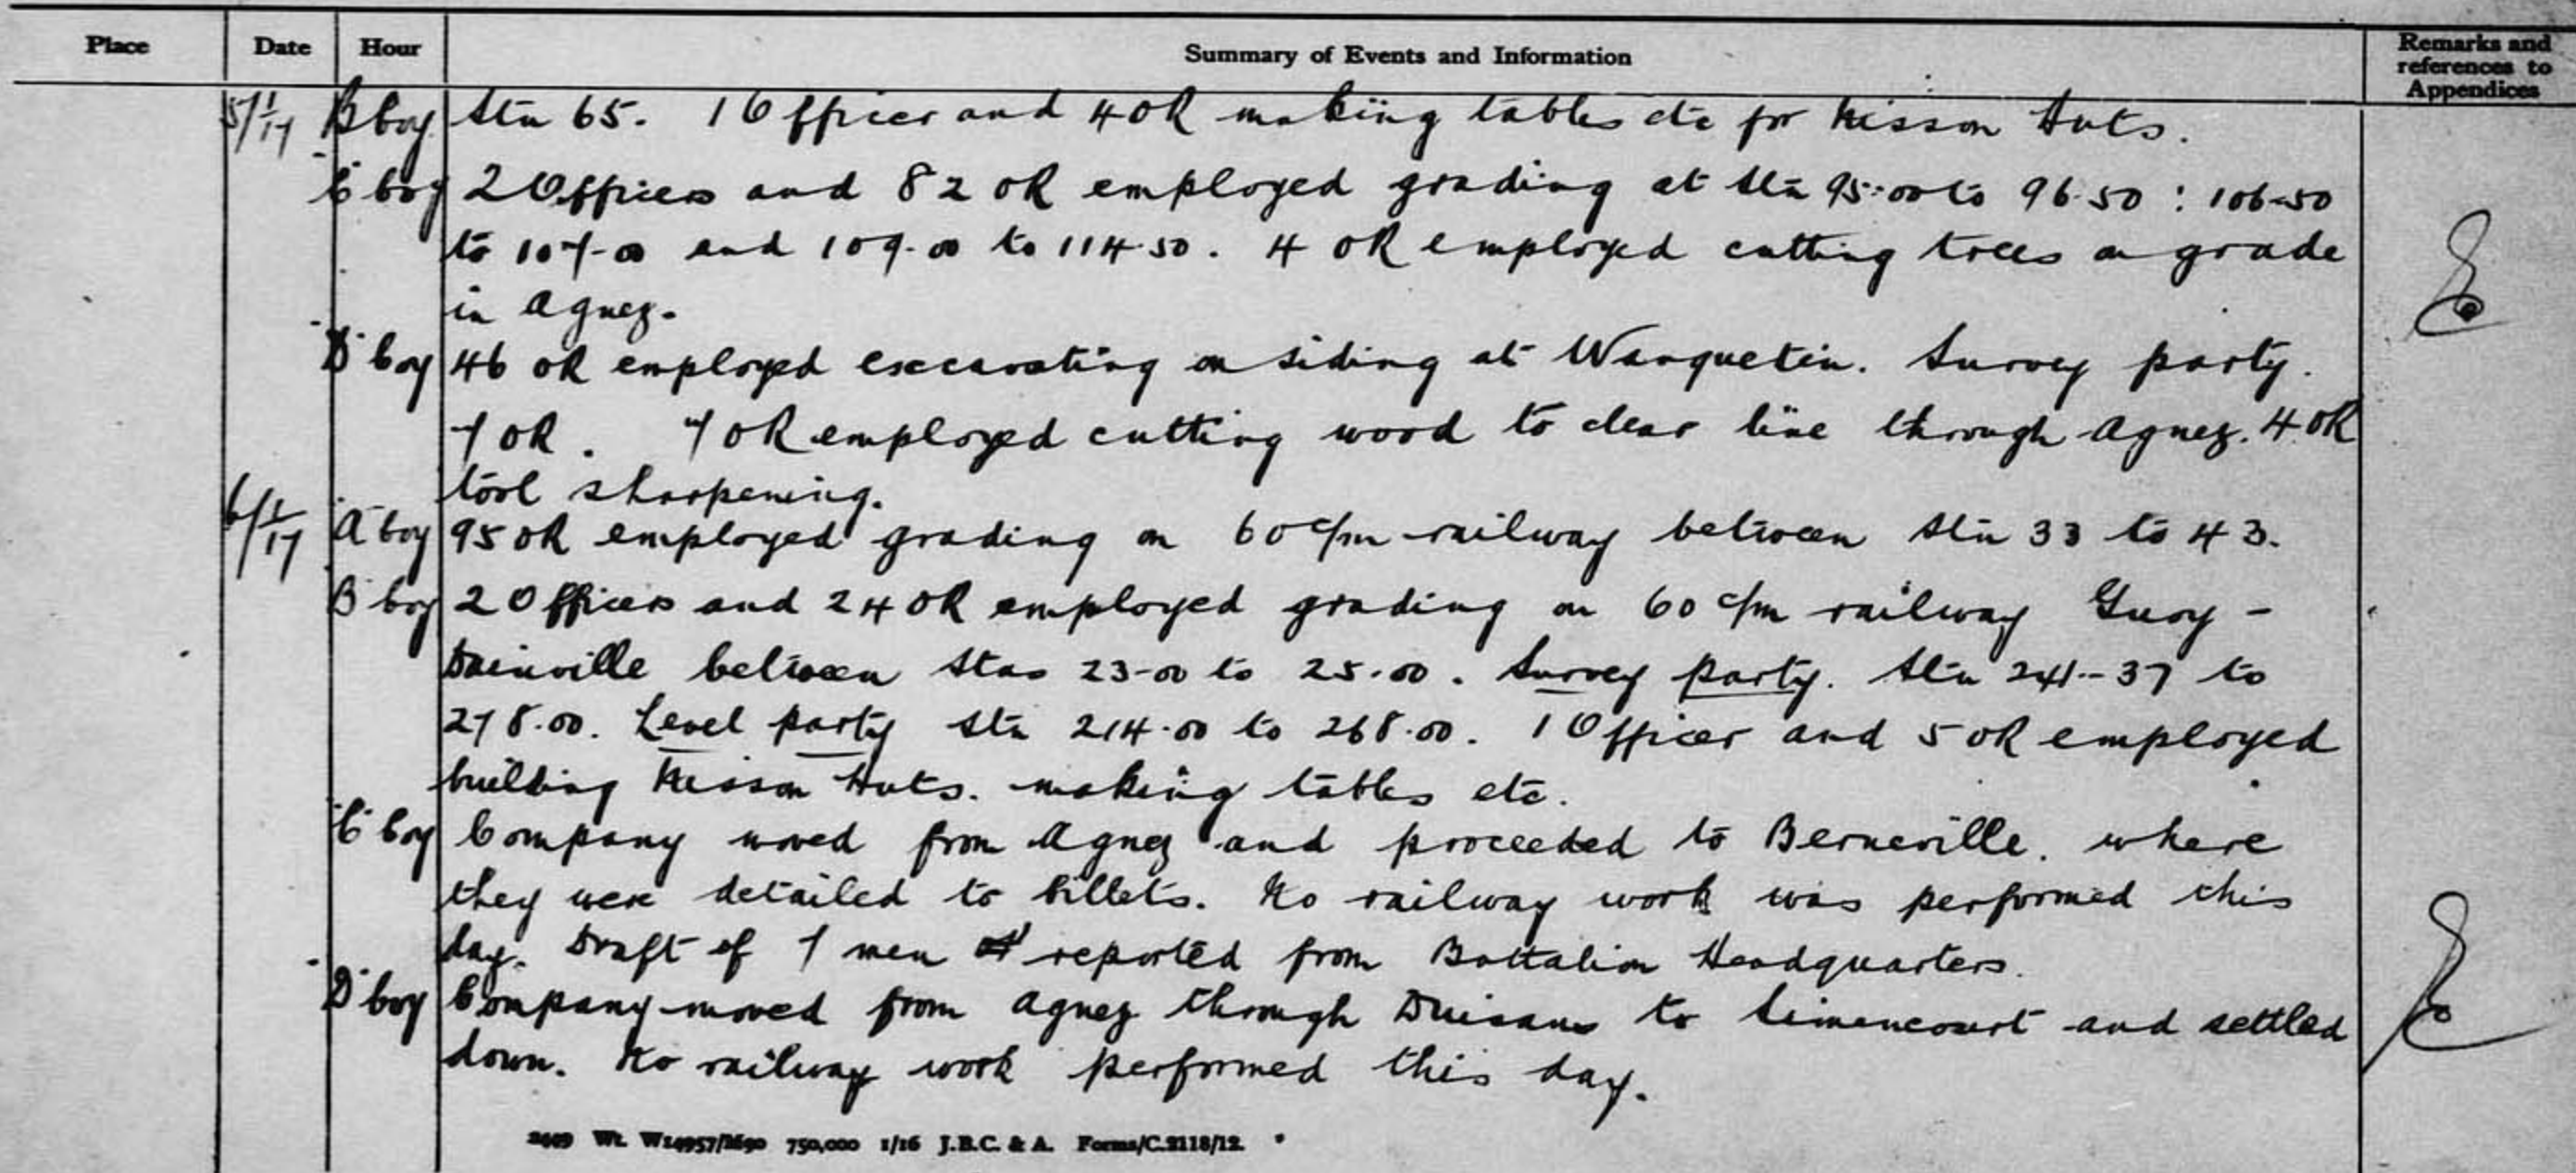 Place Date Hour Summary of Events and Information Remarks and references to Appendices
5/1/17 B Coy Stn 65. 1 Officer and 4 OR making tables etc for Nisson Huts.
"C" Coy 2 Officers and 82 OR employed grading at Stn 95.00 to 96.50 : 106-50
to 107-00 and 109.00 to 114.50. 4 OR employed cutting trees on grade
in Agnez.
"D" Coy 46 OR employed excavating on siding at Wanquetin. Survey party.
7 OR. 7 OR employed cutting wood to clear line through Agnez. 4 OR
tool sharpening.
6/1/17 "A" Coy 95 OR employed grading on 60 c/m railway between Stn 33 to 43.
B Coy 2 Officers and 24 OR employed grading on 60 c/m railway Gouy -
Dainville between Stas 23-00 to 25.00. Survey party. Stn 241-37 to
278.00. Level party Stn 214.00 to 268.00. 1 Officer and 5 OR employed
building Nisson Huts. making tables etc.
"C" Coy Company moved from Agnez and proceeded to Berneville. where
they were detailed to billets. No railway work was performed this
day. Draft of 7 men reported from Battalion Headquarters.
"D" Coy Company moved from Agnez through Duisans to Simencourt and settled
down. No railway work performed this day.
2449 Wt. W14957/M90 750,000 1/16 J.B.C. & A. Forms/C.2118/12.